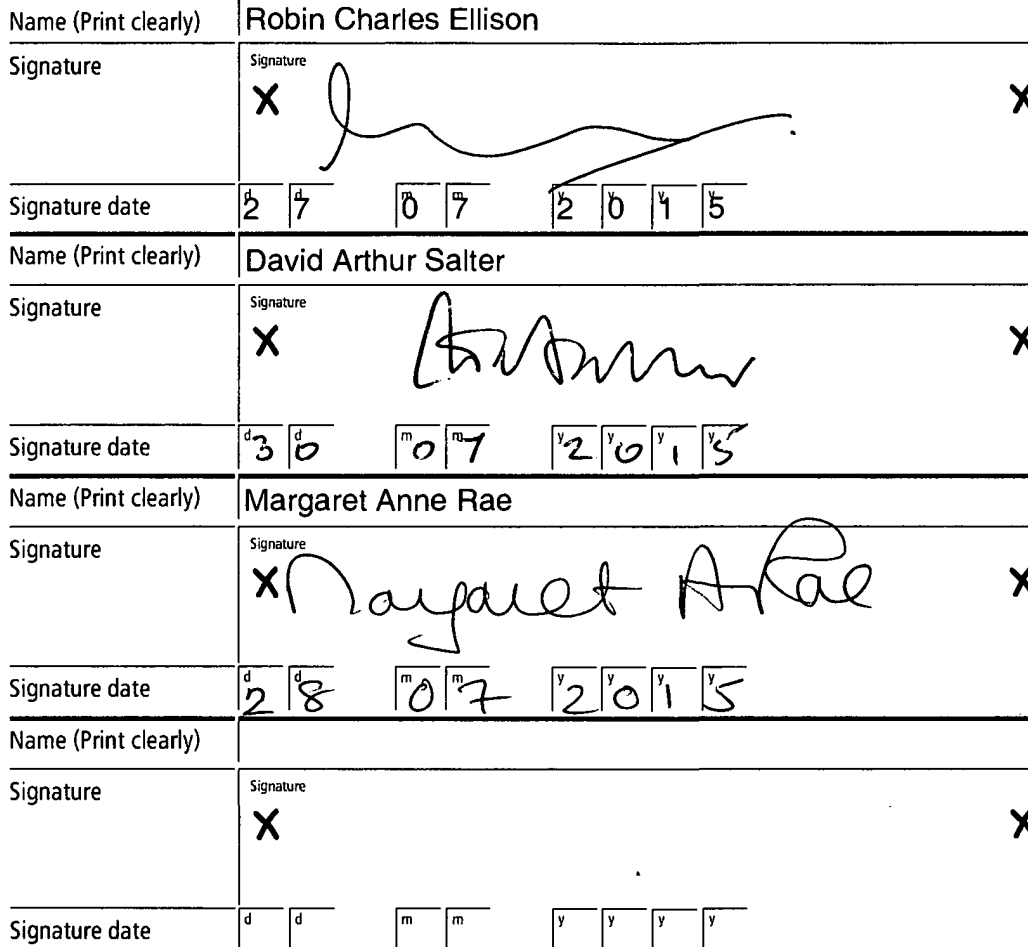 Name (Print clearly) Robin Charles Ellison
Signature Signature
X X
Signature date d2 d7 m0 m7 y2 y0 y1 y5
Name (Print clearly) David Arthur Salter
Signature Signature
X X
Signature date d3 d0 m0 m7 y2 y0 y1 y5
Name (Print clearly) Margaret Anne Rae
Signature Signature
X Margaret A Rae X
Signature date d2 d8 m0 m7 y2 y0 y1 y5
Name (Print clearly)
Signature Signature
X X
Signature date d d m m y y y y